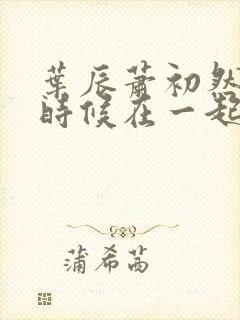 葉辰蕭初然
時候在一起
蒲希茜